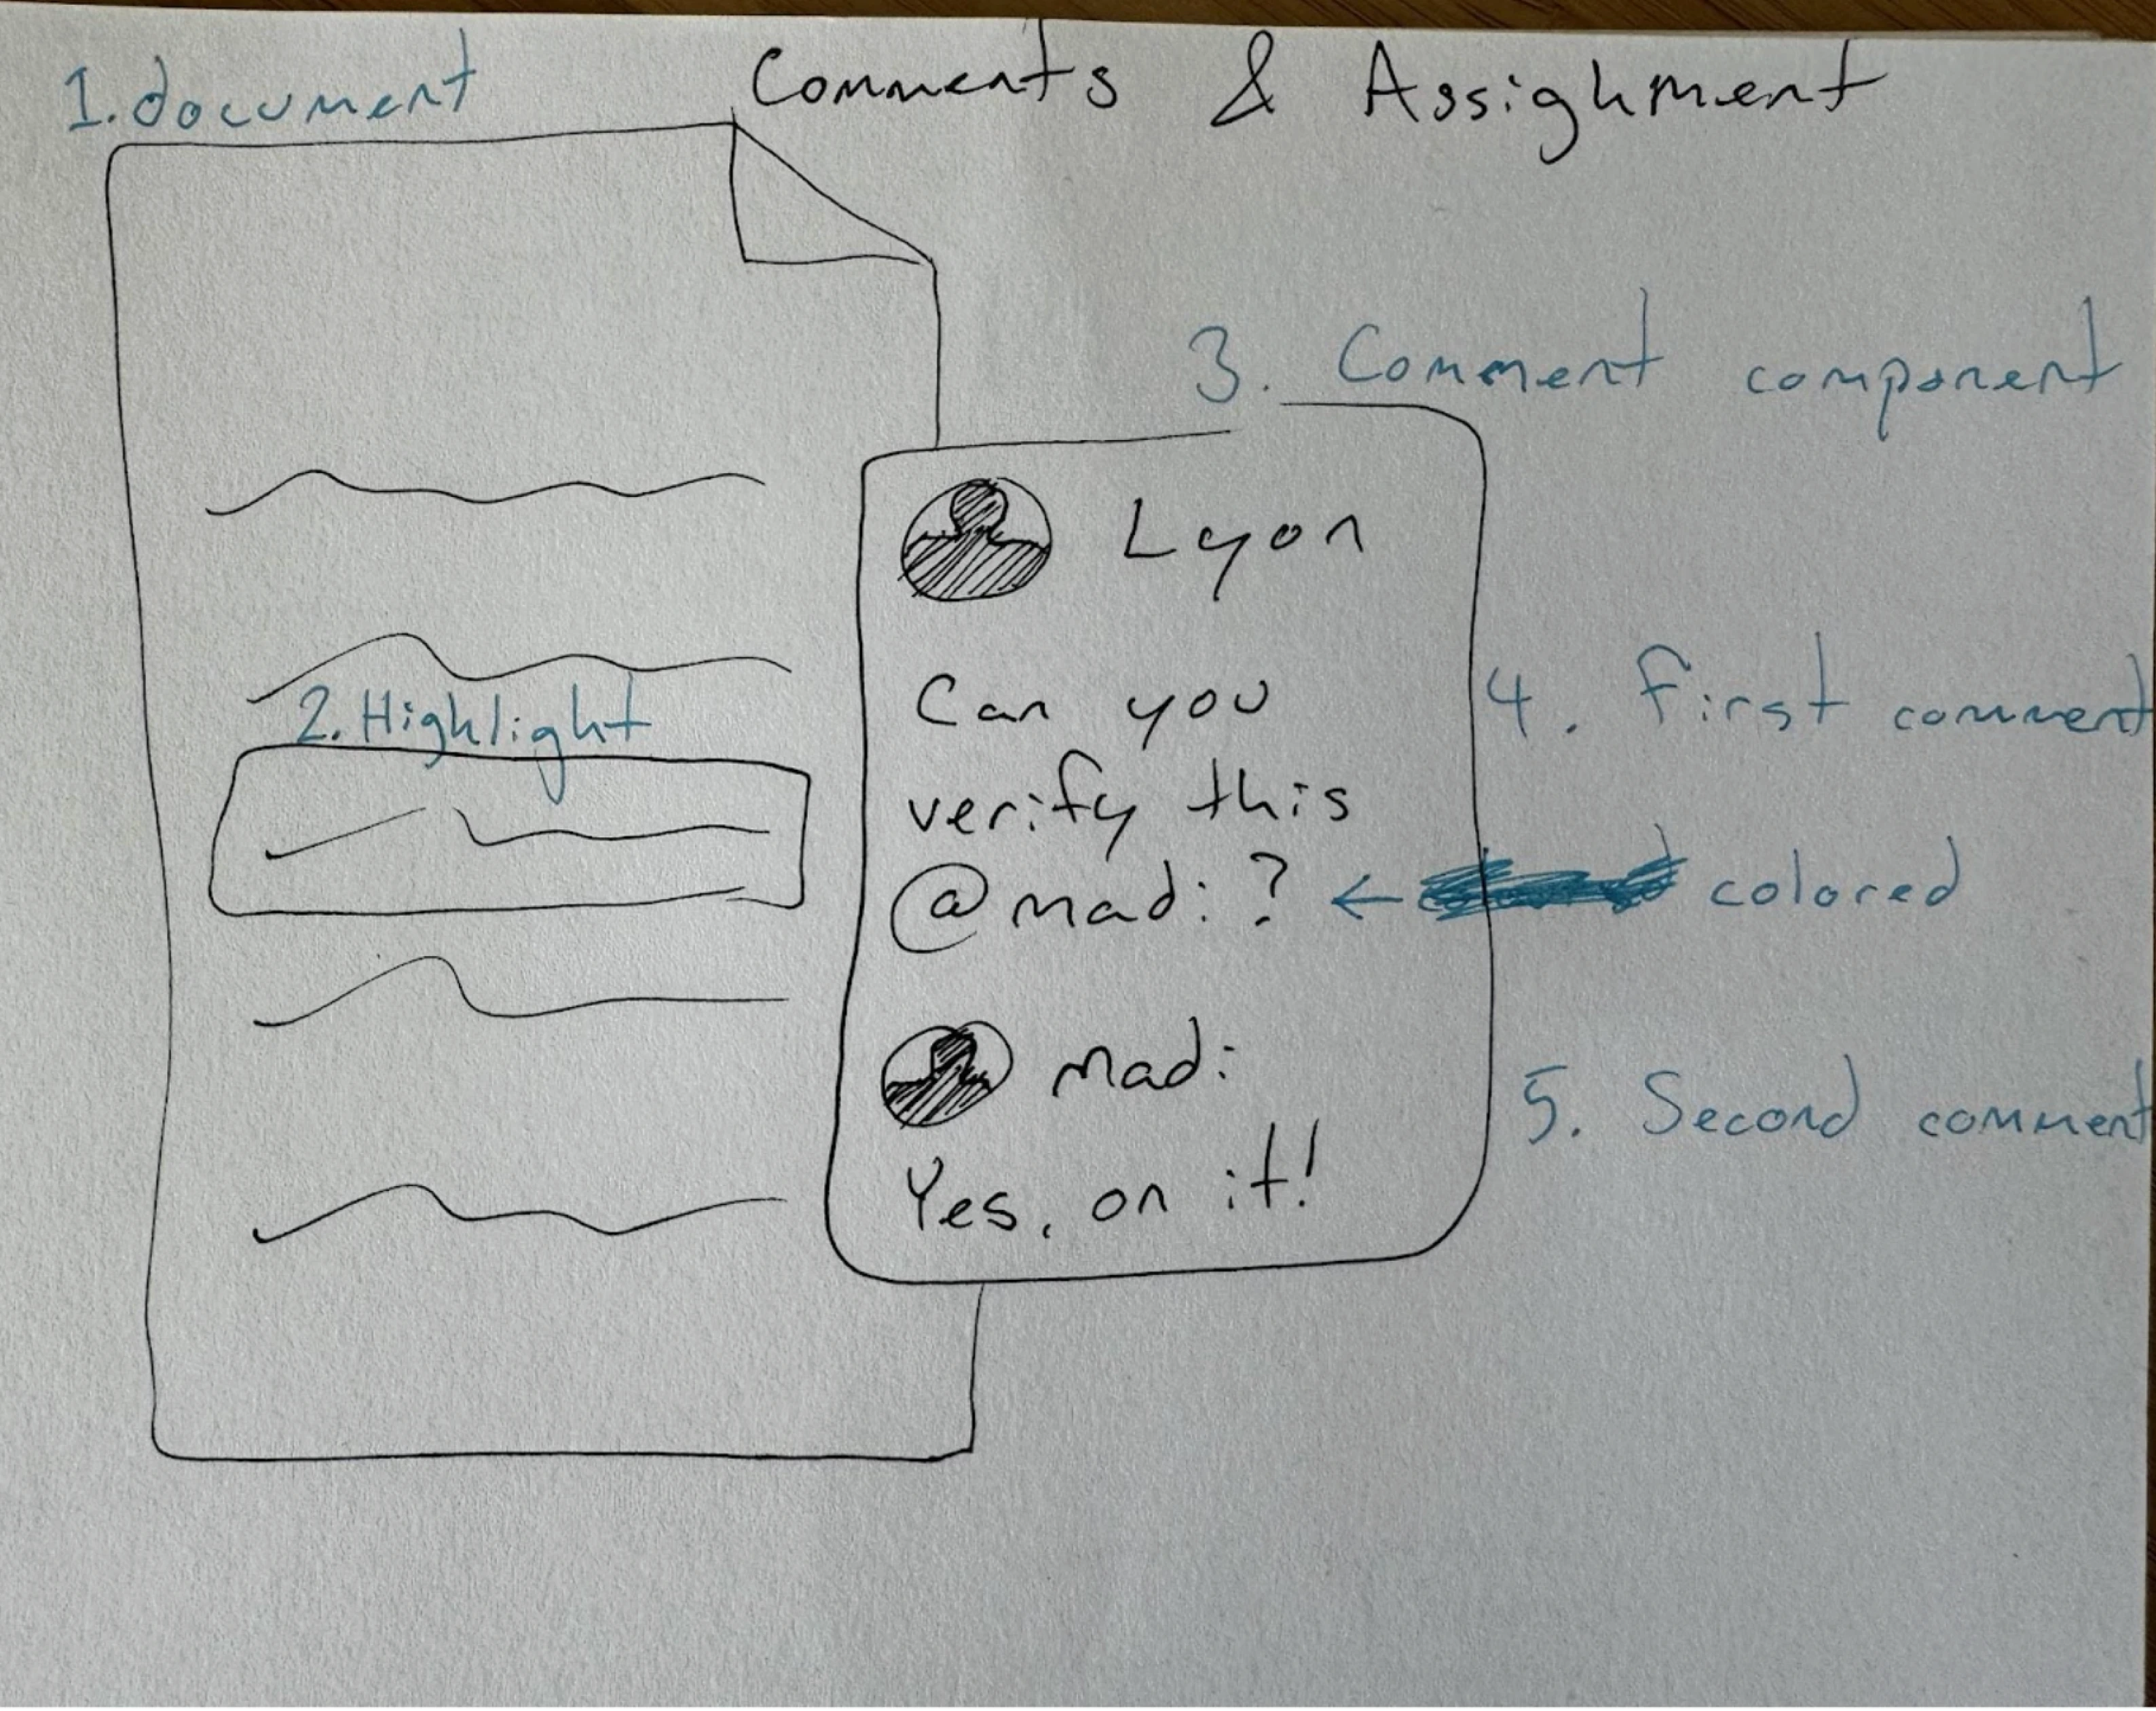 1. document
Comments & Assighment
3. Comment component
Lyon
Can you
verify this
@madi?
← colored
4. First comment
2. Highlight
madi
Yes, on it!
5. Second comment